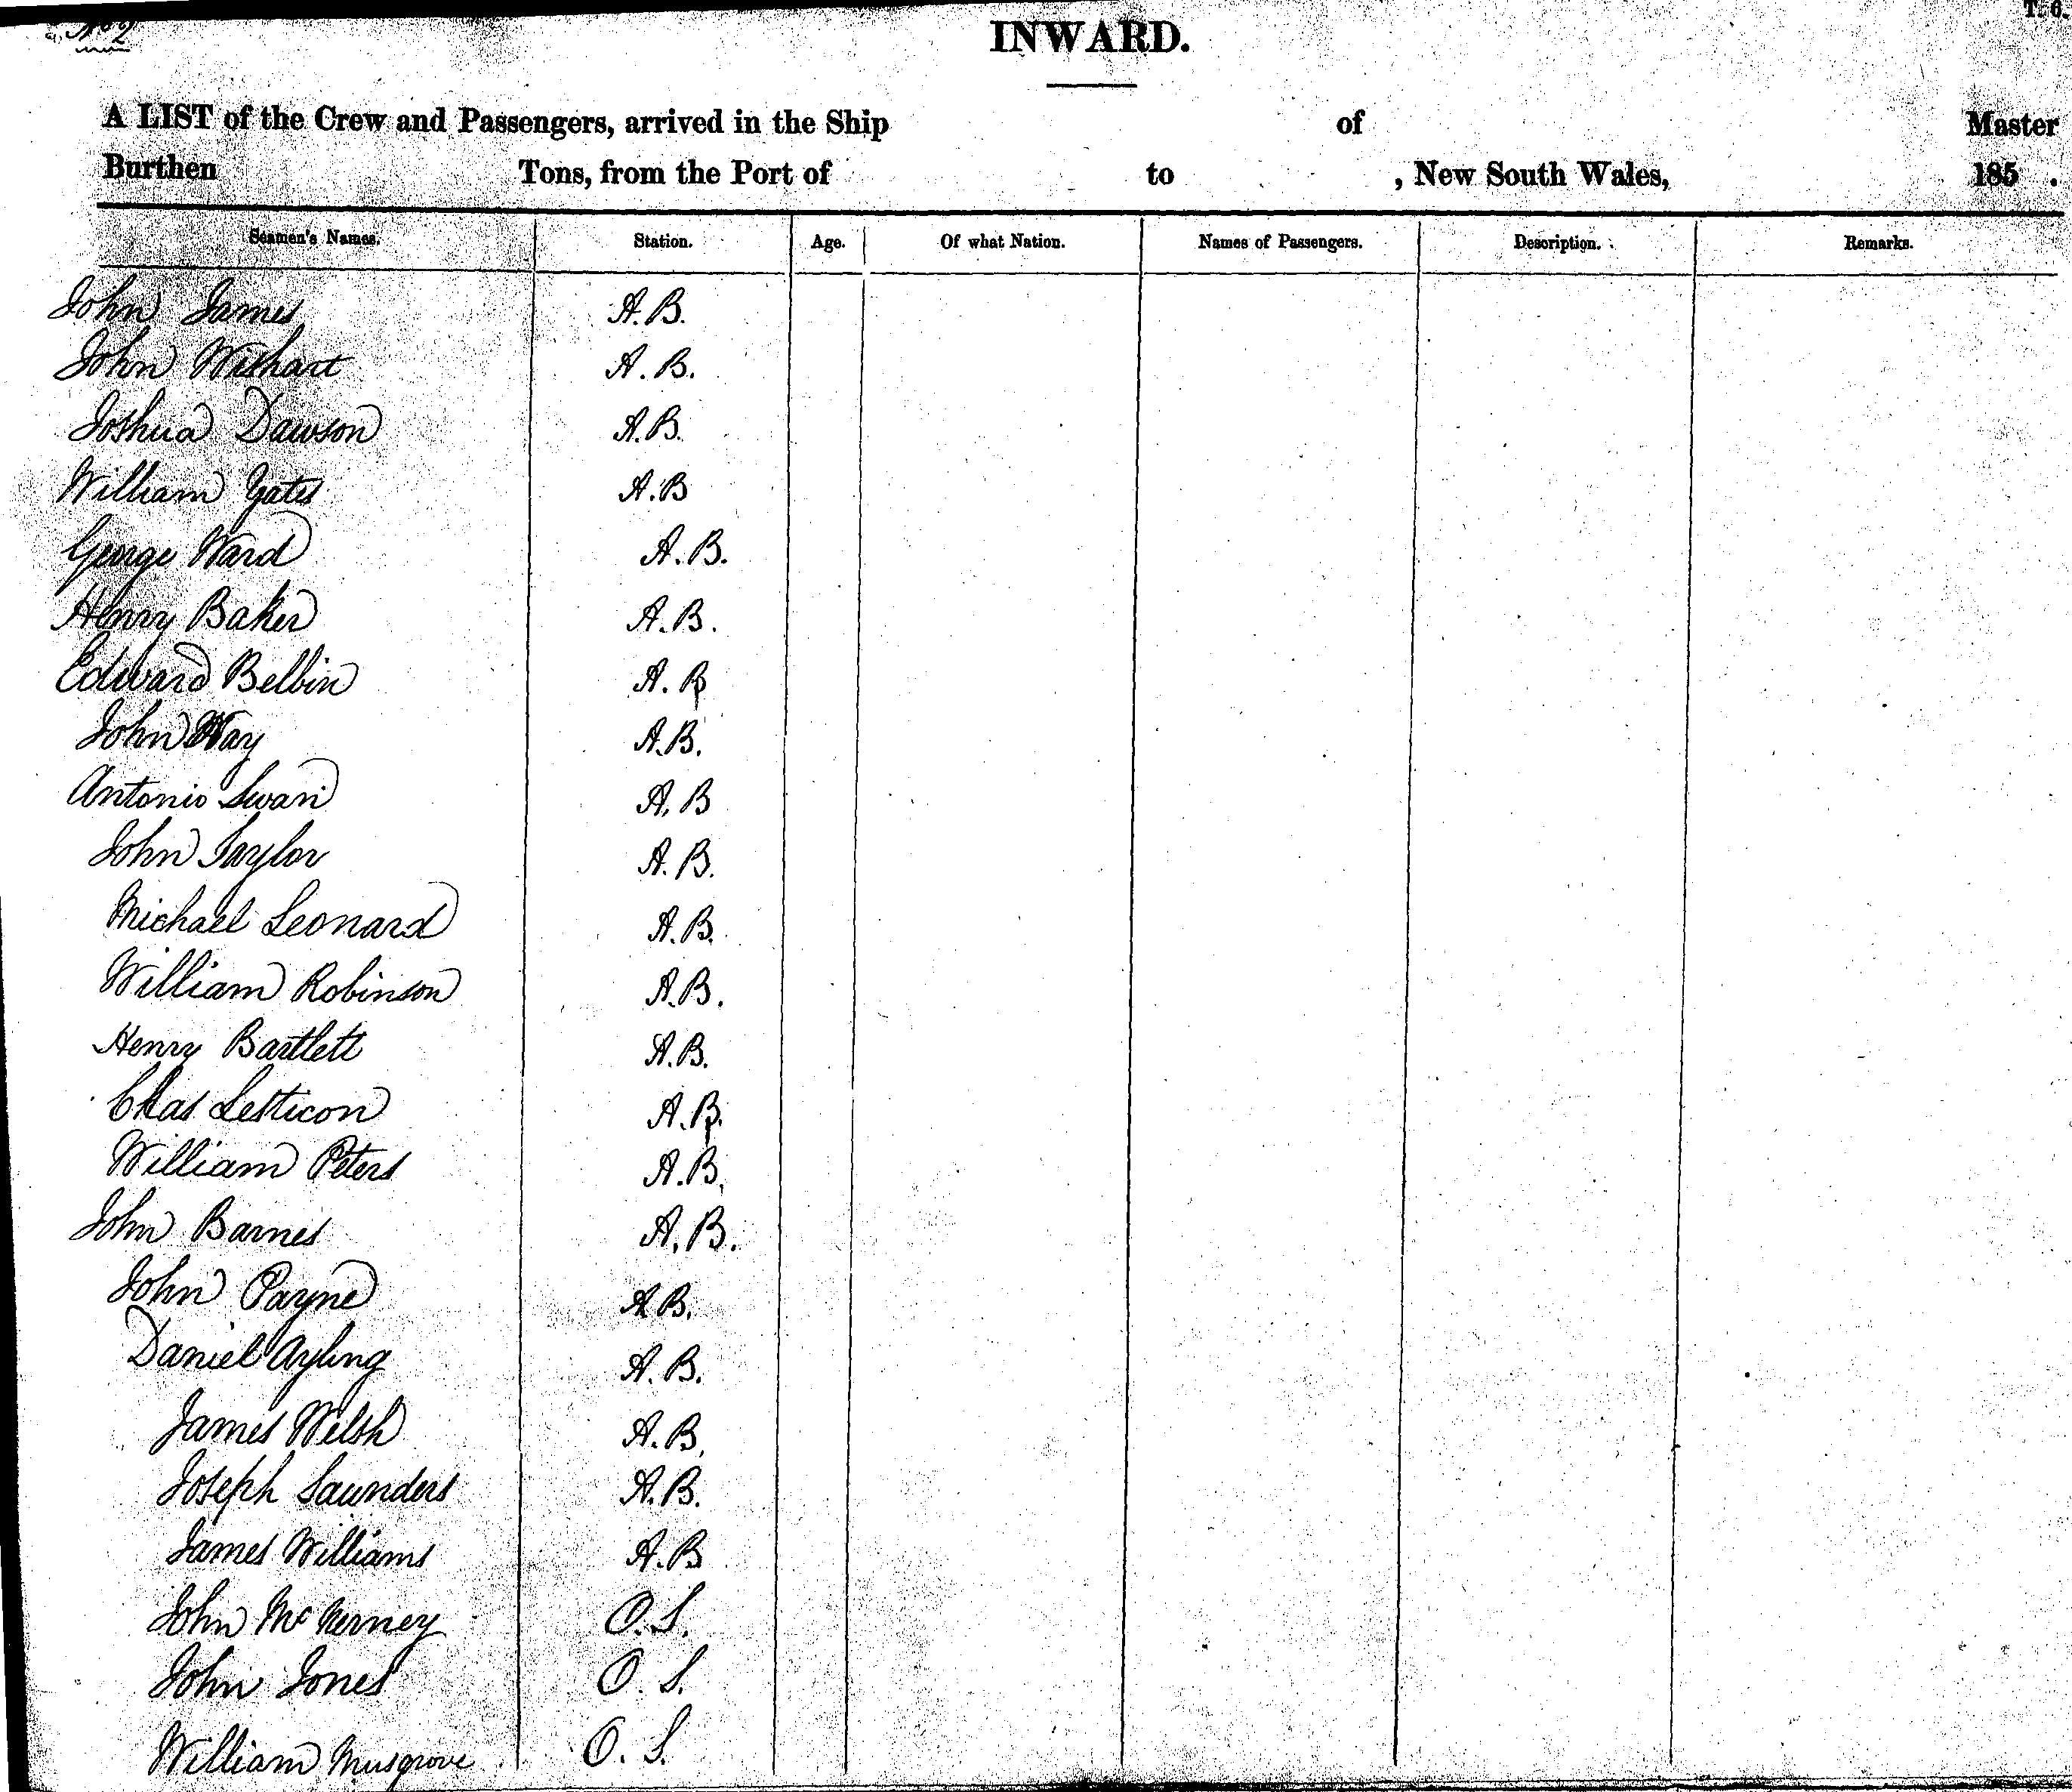 No 2
T. 6.
INWARD.
A LIST of the Crew and Passengers, arrived in the Ship of Master
Burthen Tons, from the Port of to , New South Wales, 185 .
Seamen's Names. Station. Age. Of what Nation. Names of Passengers. Description. Remarks.
John James A.B.
John Wishart A.B.
Joshua Dawson A.B.
William Yates A.B
George Ward A.B.
Henry Baker A.B.
Edward Belbin A.B
John Way A.B.
Antonio Swan A.B
John Taylor A.B.
Michael Leonard A.B.
William Robinson A.B.
Henry Bartlett A.B.
Chas Letticon A.B.
William Peters A.B.
John Barnes A.B.
John Payne A.B.
Daniel Ayling A.B.
James Welsh A.B.
Joseph Saunders A.B.
James Williams A.B
John McNerney O.S.
John Jones O.S.
William Musgrove O.S.